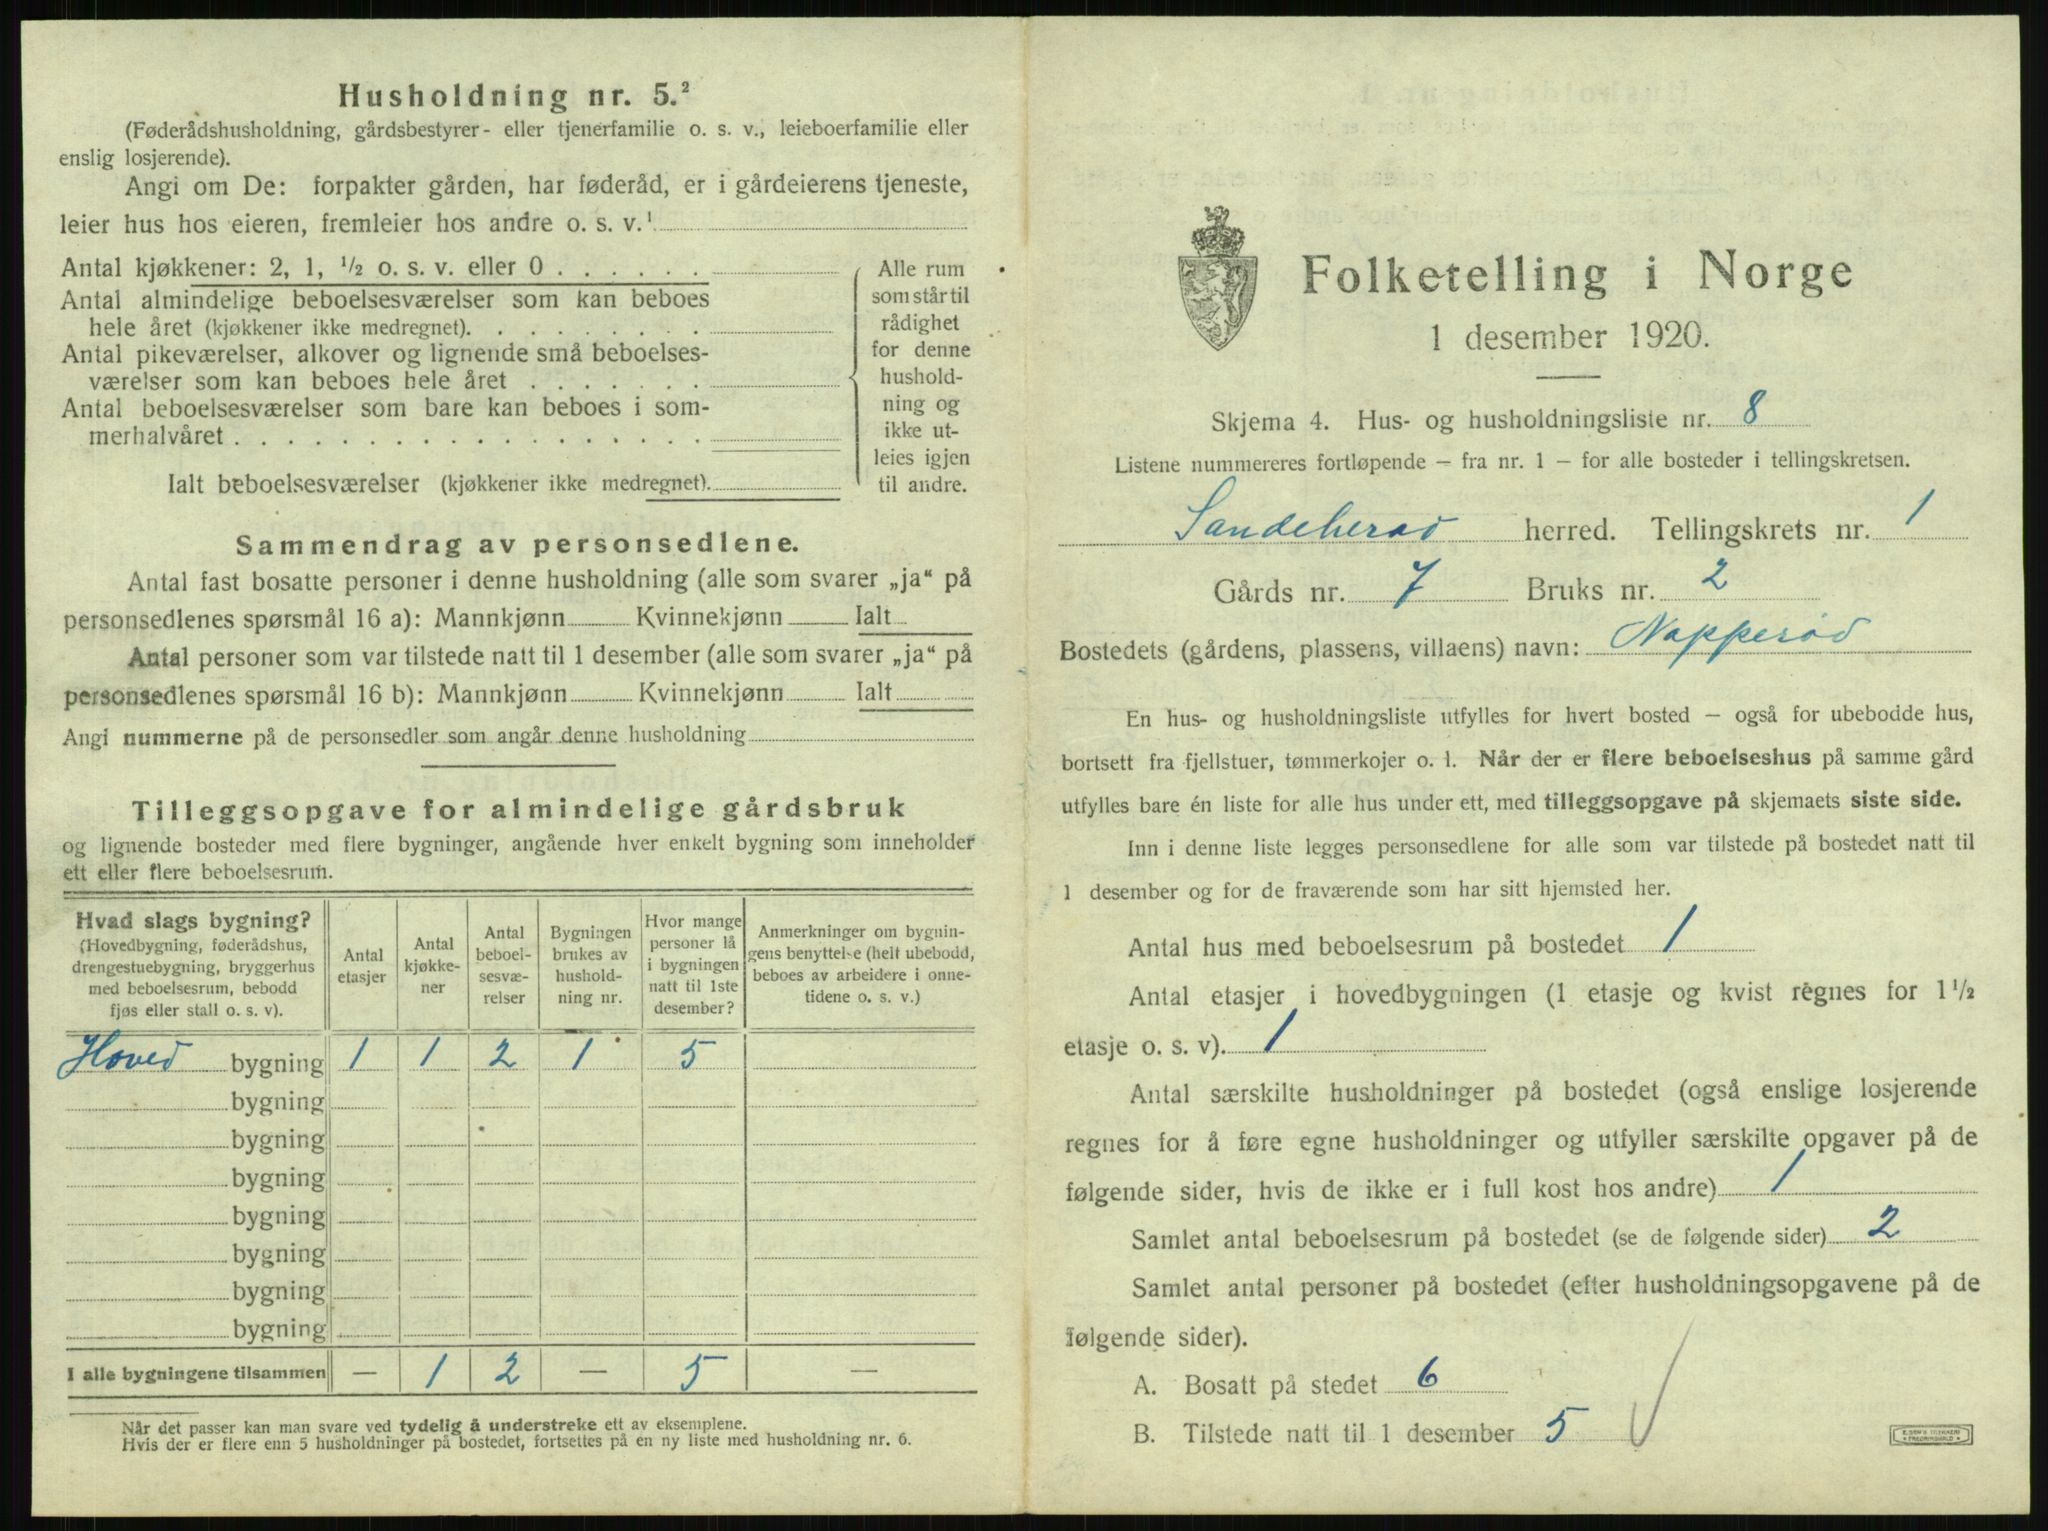 Husholdning nr. 5.²
(Føderådshusholdning, gårdsbestyrer- eller tjenerfamilie o. s. v., leieboerfamilie eller
enslig losjerende).
Angi om De: forpakter gården, har føderåd, er i gårdeierens tjeneste,
leier hus hos eieren, fremleier hos andre o. s. v.¹
Antal kjøkkener: 2, 1, ½ o. s. v. eller 0 . . . . . .
Antal almindelige beboelsesværelser som kan beboes
hele året (kjøkkener ikke medregnet). . . . . . . . .
Antal pikeværelser, alkover og lignende små beboelses-
værelser som kan beboes hele året . . . . . . .
Antal beboelsesværelser som bare kan beboes i som-
merhalvåret . . . . . . . . . . . . . . . . . .
Ialt beboelsesværelser (kjøkkener ikke medregnet).
Alle rum
som står til
rådighet
for denne
hushold-
ning og
ikke ut-
leies igjen
til andre.
Sammendrag av personsedlene.
Antal fast bosatte personer i denne husholdning (alle som svarer „ja“ på
personsedlenes spørsmål 16 a): Mannkjønn Kvinnekjønn Ialt
Antal personer som var tilstede natt til 1 desember (alle som svarer „ja“ på
personsedlenes spørsmål 16 b): Mannkjønn Kvinnekjønn Ialt
Angi nummerne på de personsedler som angår denne husholdning
Tilleggsopgave for almindelige gårdsbruk
og lignende bosteder med flere bygninger, angående hver enkelt bygning som inneholder
ett eller flere beboelsesrum.
Hvad slags bygning?
(Hovedbygning, føderådshus,
drengestuebygning, bryggerhus
med beboelsesrum, bebodd
fjøs eller stall o. s. v).
Antal
etasjer
Antal
kjøkke-
ner
Antal
beboel-
sesvæ-
relser
Bygningen
brukes av
hushold-
ning nr.
Hvor mange
personer lå
i bygningen
natt til 1ste
desember?
Anmerkninger om bygnin-
gens benyttelse (helt ubebodd,
beboes av arbeidere i onne-
tidene o. s. v.)
Hoved bygning 1 1 2 1 5
bygning
bygning
bygning
bygning
bygning
bygning
bygning
I alle bygningene tilsammen — 1 2 — 5 —
Når det passer kan man svare ved tydelig å understreke ett av eksemplene.
Hvis der er flere enn 5 husholdninger på bostedet, fortsettes på en ny liste med husholdning nr. 6.
Folketelling i Norge
1 desember 1920.
Skjema 4. Hus- og husholdningsliste nr. 8
Listene nummereres fortløpende – fra nr. 1 – for alle bosteder i tellingskretsen.
Sandeherad herred. Tellingskrets nr. 1
Gårds nr. 7 Bruks nr. 2
Bostedets (gårdens, plassens, villaens) navn: Napperød
En hus- og husholdningsliste utfylles for hvert bosted – også for ubebodde hus,
bortsett fra fjellstuer, tømmerkojer o. l. Når der er flere beboelseshus på samme gård
utfylles bare én liste for alle hus under ett, med tilleggsopgave på skjemaets siste side.
Inn i denne liste legges personsedlene for alle som var tilstede på bostedet natt til
1 desember og for de fraværende som har sitt hjemsted her.
Antal hus med beboelsesrum på bostedet 1
Antal etasjer i hovedbygningen (1 etasje og kvist regnes for 1½
etasje o. s. v). 1
Antal særskilte husholdninger på bostedet (også enslige losjerende
regnes for å føre egne husholdninger og utfyller særskilte opgaver på de
følgende sider, hvis de ikke er i full kost hos andre) 1
Samlet antal beboelsesrum på bostedet (se de følgende sider) 2
Samlet antal personer på bostedet (efter husholdningsopgavene på de
følgende sider).
A. Bosatt på stedet 6
B. Tilstede natt til 1 desember 5